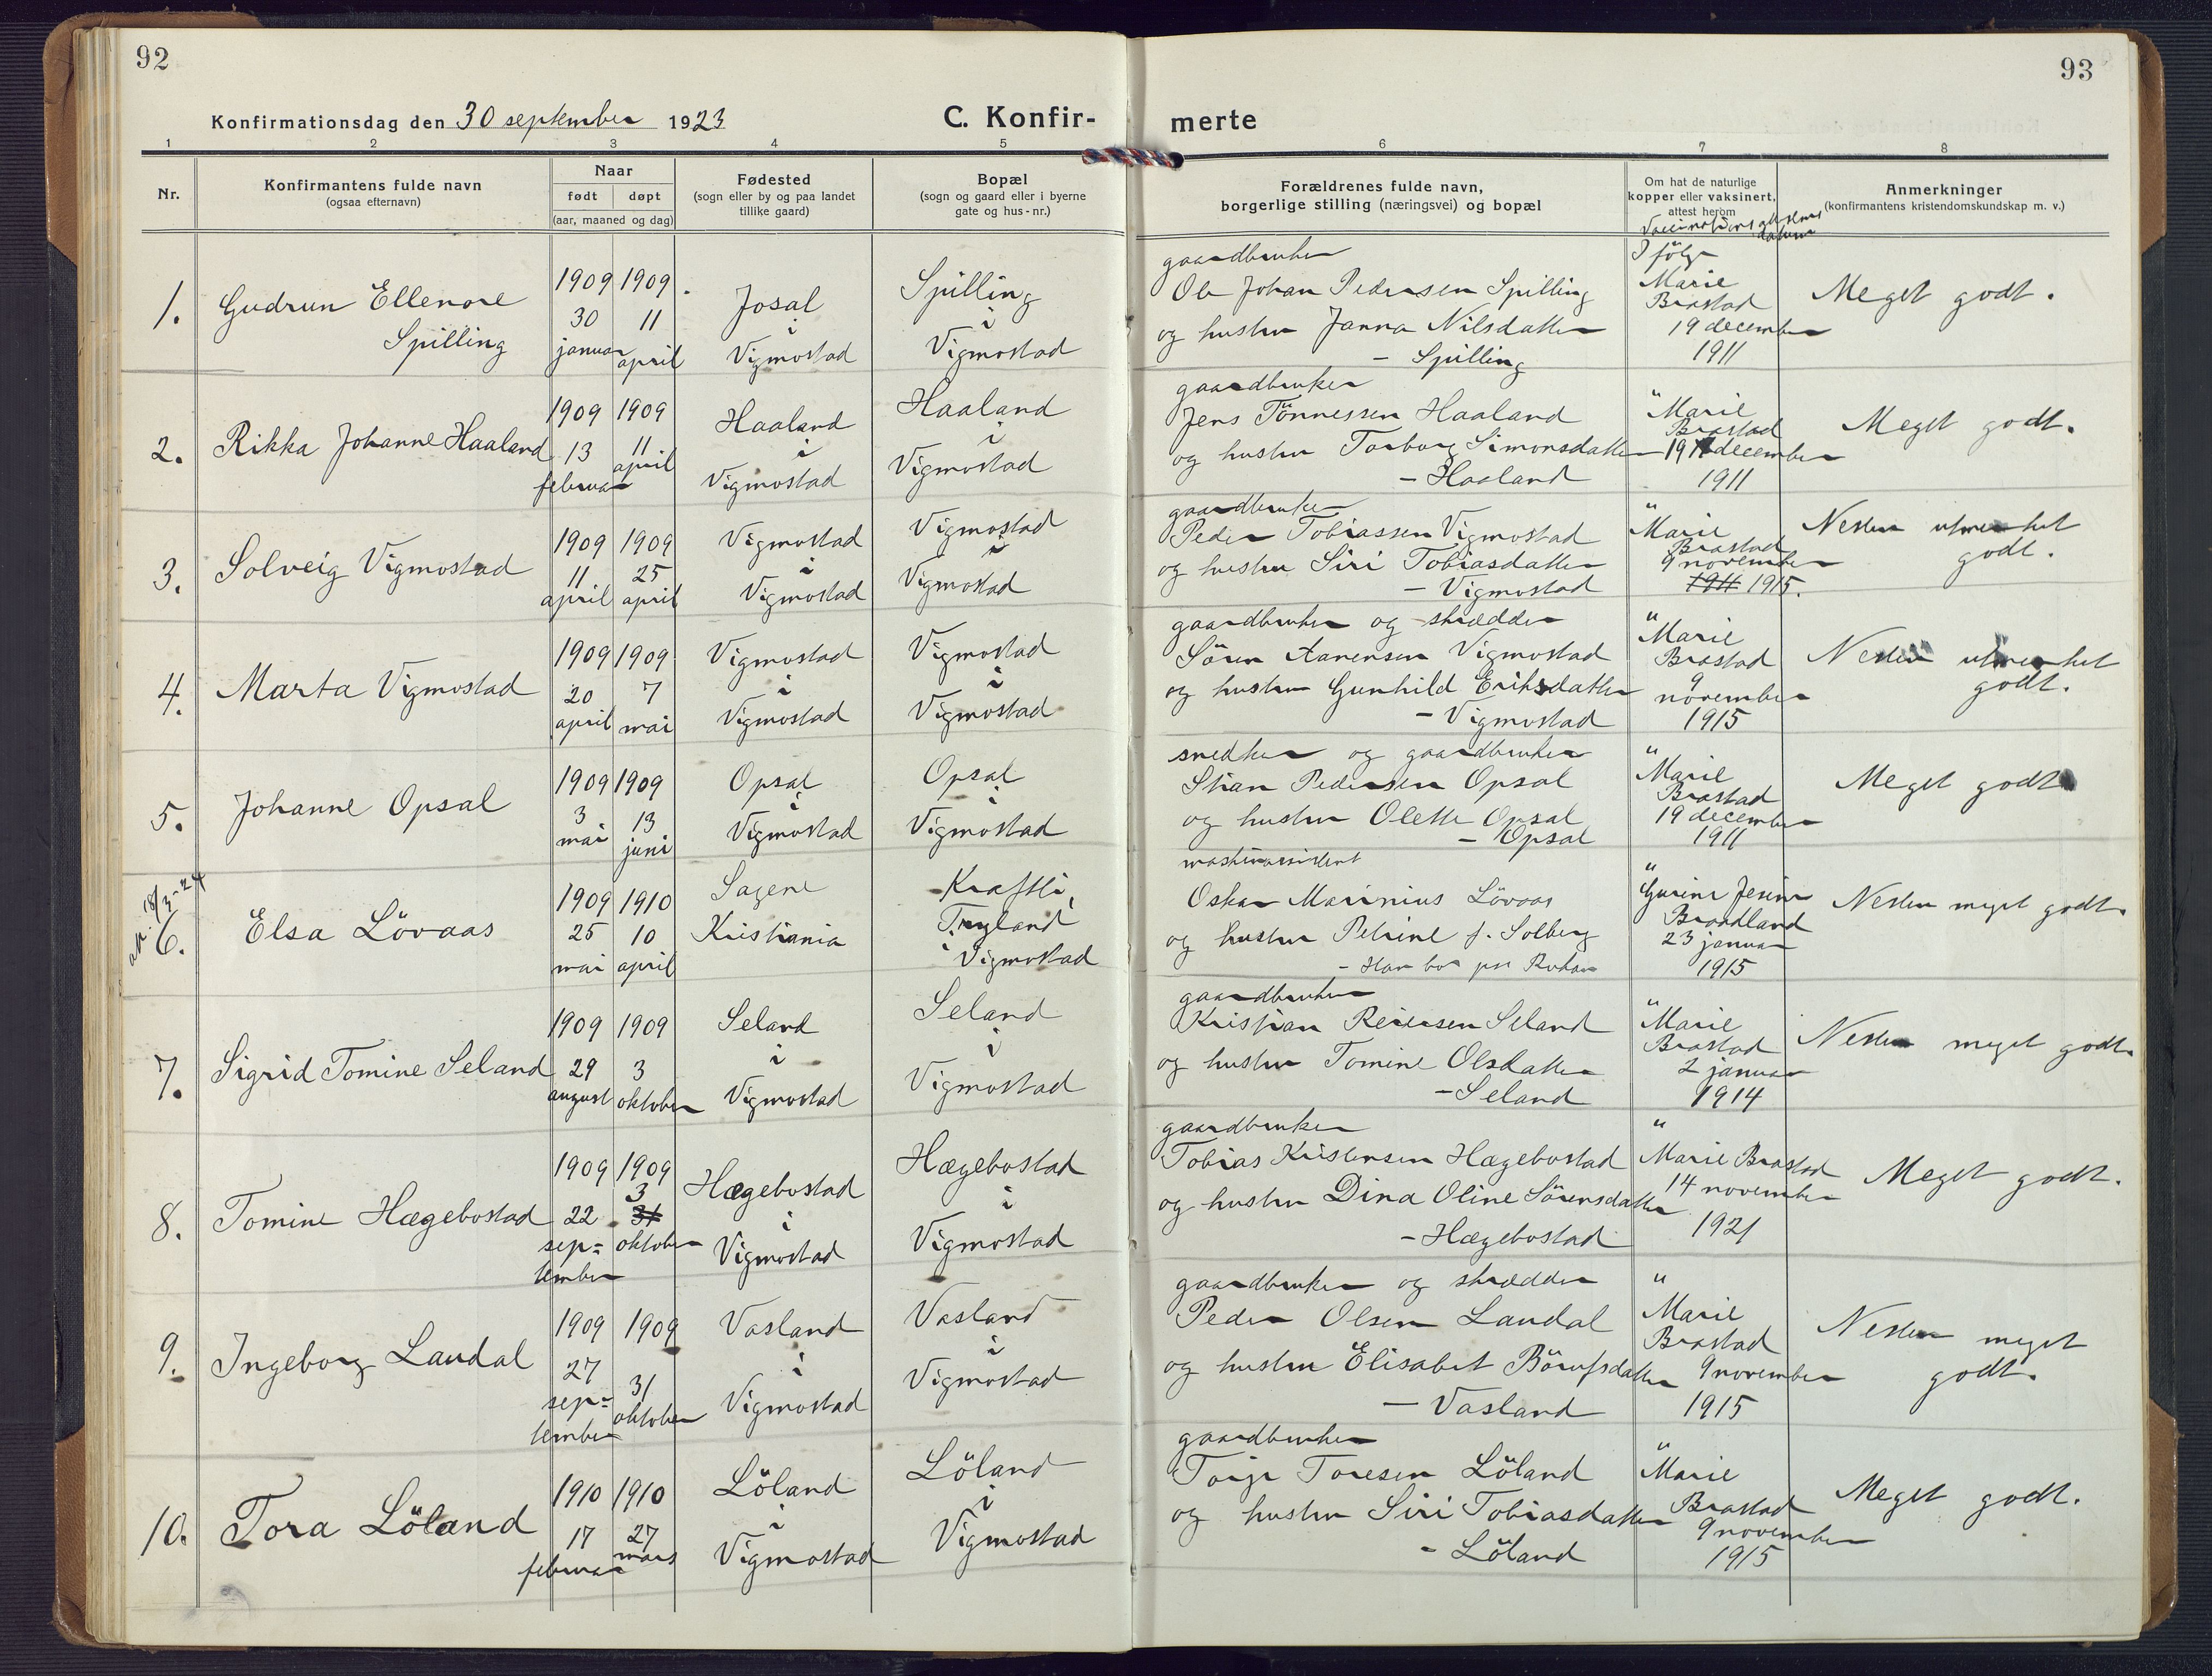 92
93
Konfirmationsdag den 30 september 1923
C. Konfir-
merte
1 2 3 4 5 6 7 8
Nr.
Konfirmantens fulde navn
(ogsaa efternavn)
Naar
født døpt
(aar, maaned og dag)
Fødested
(sogn eller by og paa landet
tillike gaard)
Bopæl
(sogn og gaard eller i byerne
gate og hus-nr.)
Forældrenes fulde navn,
borgerlige stilling (næringsvei) og bopæl
Om hat de naturlige
kopper eller vaksinert,
attest herom
Vaccinationsattestens
datum
Anmerkninger
(konfirmantens kristendomskundskap m. v.)
1.
Gudrun Ellenore
Spilling
1909 1909
30 11
januar april
Josal
i
Vigmostad
Spilling
i
Vigmostad
gaardbruker
Ole Johan Pedersen Spilling
og hustru Janna Nilsdatter
- Spilling
Ifölge
Marie
Brastad
19 december
1911
Meget godt.
2.
Rikka Johanne Haaland
1909 1909
13 11
februar april
Haaland
i
Vigmostad
Haaland
i
Vigmostad
gaardbruker
Jens Tönnessen Haaland
og hustru Torborg Simonsdatter
- Haaland
"
Marie
Brastad
19 december
1911
Meget godt.
3.
Solveig Vigmostad
1909 1909
11 25
april april
Vigmostad
i
Vigmostad
Vigmostad
i
Vigmostad
gaardbruker
Peder Tobiassen Vigmostad
og hustru Siri Tobiasdatter
- Vigmostad
"
Marie
Brastad
9 november
1911 1915.
Nesten utmerket
godt.
4.
Marta Vigmostad
1909 1909
20 7
april mai
Vigmostad
i
Vigmostad
Vigmostad
i
Vigmostad
gaardbruker og skrædder
Sören Aanensen Vigmostad
og hustru Gunhild Eriksdatter
- Vigmostad
"
Marie
Brastad
9
november
1915
Nesten utmerket
godt.
5.
Johanne Opsal
1909 1909
3 13
mai juni
Opsal
i
Vigmostad
Opsal
i
Vigmostad
snedker og gaardbruker
Stian Pedersen Opsal
og hustru Olette Opsal
- Opsal
"
Marie
Brastad
19 december
1911
Meget godt
6.
Elsa Lövaas
1909 1910
25 10
mai april
Sagene
Kristiania
Kraftli,
Trygland
i Vigmostad
maskinassistent
Oskar Marinius Lövaas
og hustru Petrine f. Solberg
- Han bor paa Rjukan
"
Gurine Jesine
Braadland
23 januar
1915
Nesten meget godt.
7.
Sigrid Tomine Seland
1909 1909
29 3
august oktober
Seland
i
Vigmostad
Seland
i
Vigmostad
gaardbruker
Kristian Reiersen Seland
og hustru Tomine Olsdatter
- Seland
"
Marie
Brastad
2 januar
1914
Nesten meget godt.
8.
Tomine Hægebostad
1909 1909
3
22 31
sep= oktober
tember
Hægebostad
i
Vigmostad
Hægebostad
i
Vigmostad
gaardbruker
Tobias Kristensen Hægebostad
og hustru Dina Oline Sörensdatter
- Hægebostad
"
Marie Brastad
14 november
1921
Meget godt.
9.
Ingeborg Laudal
1909 1909
27 31
sep= oktober
tember
Vasland
i
Vigmostad
Vasland
i
Vigmostad
gaardbruker og skrædder
Peder Olsen Laudal
og hustru Elisabet Börufsdatter
- Vasland
"
Marie
Brastad
9 november
1915
Nesten meget
godt.
10.
Tora Löland
1910 1910
17 27
februar mars
Löland
i
Vigmostad
Löland
i
Vigmostad
gaardbruker
Torje Toresen Löland
og hustru Siri Tobiasdatter
- Löland
"
Marie
Brastad
9 november
1915
Meget godt.